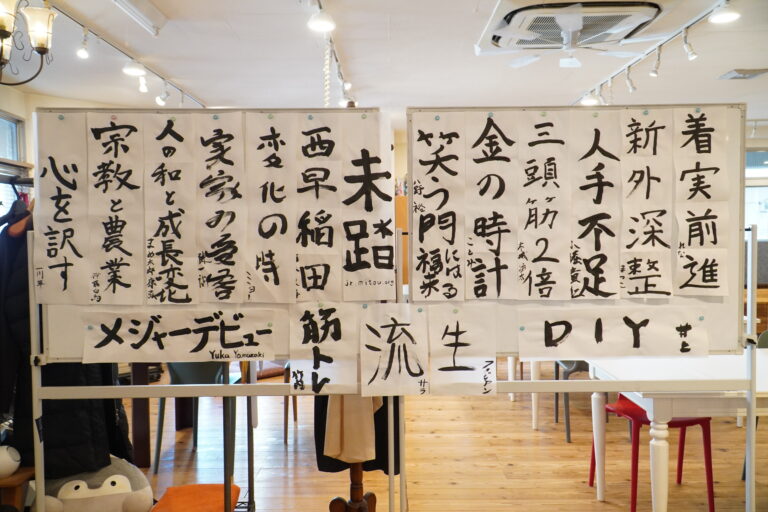 着実前進
新外深整
人手不足
三頭筋2倍
金の時計
笑う門には福来
未踏
jr.mitou.org
西早稲田
変化の時
実家の
人の和と成長変化
宗教と農業
心を訳す
一川平
メジャーデビュー
Yuka Yamazaki
筋トレ
流
サラ
生
DIY
井上